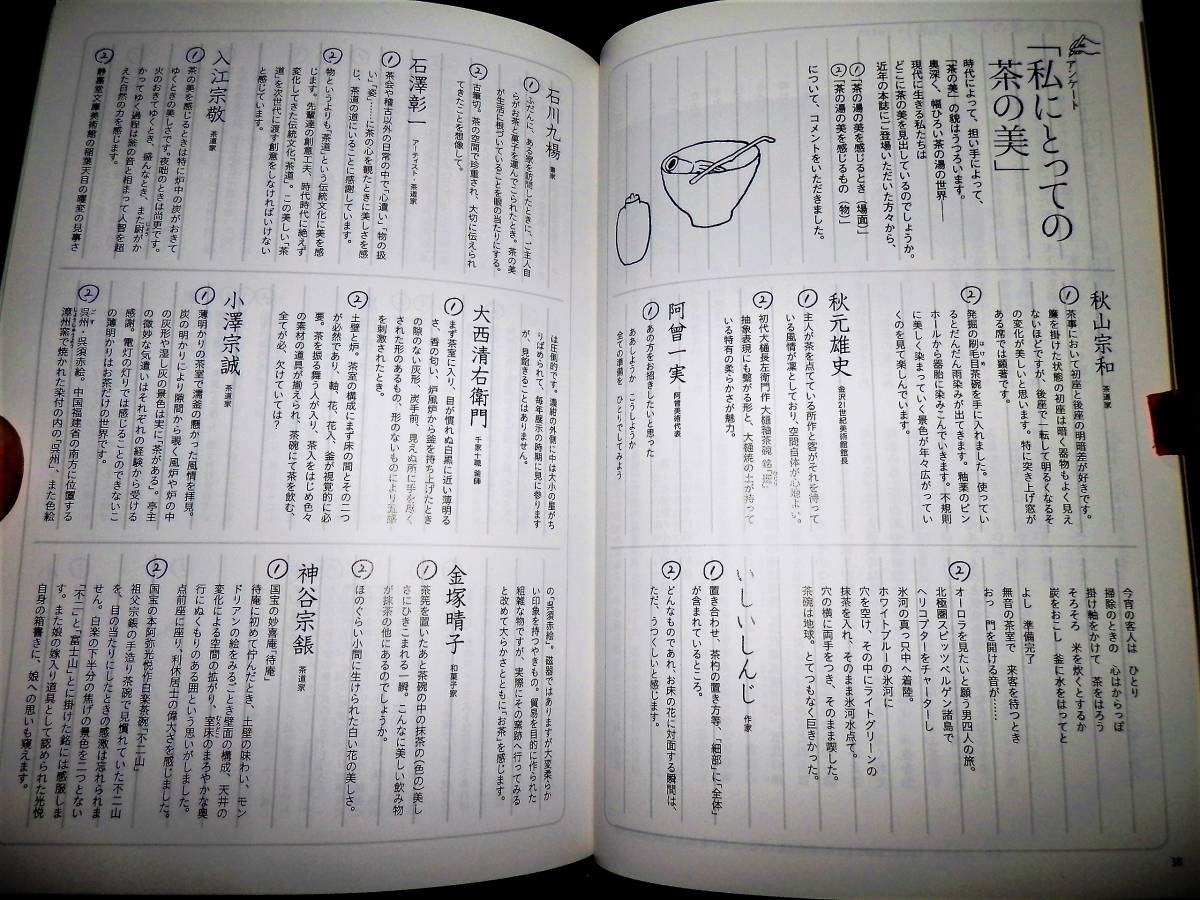 アンケート
「私にとっての
茶の美」
時代によって、担い手によって、
「茶の美」の貌はうつろいます。
奥深く、幅ひろい茶の湯の世界――
現代に生きる私たちは
どこに茶の美を見出しているのでしょうか。
近年の本誌にご登場いただいた方々から、
①「茶の湯の美を感じるとき（場面）」
②「茶の湯の美を感じるもの（物）」
について、コメントをいただきました。
秋山宗和 茶道家
① 茶事において初座と後座の明暗差が好きです。
簾を掛けた状態の初座は暗く器物もよく見え
ないほどですが、後座で一転して明るくなるそ
の変化が美しいと思います。特に突き上げ窓が
ある席では顕著です。
② 発掘の刷毛目茶碗を手に入れました。使ってい
るとだんだん雨染みが出てきます。釉薬のピン
ホールから器胎に染みこんでいきます。不規則
に美しく染まっていく景色が年々広がってい
くのを見て楽しんでいます。
秋元雄史 金沢21世紀美術館館長
① 主人が茶を点てている所作と客がそれを待って
いる風情が凜としており、空間自体が心地よい。
② 初代大樋長左衛門作 大樋釉茶碗 銘「堀」
抽象表現にも繋がる形と、大樋焼の土が持って
いる特有の柔らかさが魅力。
阿曾一実 阿曾美術代表
① あの方をお招きしたいと思った
ああしようか こうしようか
全ての準備を ひとりでしてみよう
今宵の客人は ひとり
掃除のときの 心はからっぽ
掛け軸をかけて 茶をはろう
そろそろ 米を炊くとするか
炭をおこし 釜に水をはってと
よし 準備完了
無音の茶室で 来客を待つとき
おっ 門を開ける音が……
② オーロラを見たいと願う男四人の旅。
北極圏スピッツベルゲン諸島で
ヘリコプターをチャーターし
氷河の真っ只中へ着陸。
ホワイトブルーの氷河に
穴を空け、その中にライトグリーンの
抹茶を入れ、そのまま氷河水点て。
穴の横に両手をつき、そのまま喫した。
茶碗は地球。とてつもなく巨きかった。
いしいしんじ 作家
① 置き合わせ、茶杓の置き方等、「細部」に「全体」
が含まれているところ。
② どんなものであれ、お床の花に対面する瞬間は、
ただ、うつくしいと感じます。
38
石川九楊 書家
① ふだんに、ある家を訪問したときに、ご主人自
らがお茶と菓子を運んでこられたとき。茶の美
が生活に根づいていることを眼の当たりにする。
② 古筆切。茶の空間で珍重され、大切に伝えられ
てきたことを想像して。
石澤彰一 アーティスト・茶道家
① 茶会や稽古以外の日常の中で「心遣い」「物の扱
い」「姿」……に茶の心を観たときに美しさを感
じ、茶道の道にいることに感謝しています。
② 物というよりも「茶道」という伝統文化に美を感
じます。先輩達の創意工夫、時代時代に絶えず
変化してきた伝統文化「茶道」。この美しい「茶
道」を次世代に渡す創意をしなければいけない
と感じています。
入江宗敬 茶道家
① 茶の美を感じるときは特に炉中の炭がおきて
ゆくときの美しさです。夜咄のときは尚更です。
火のおきてゆくとき、盛んなとき、また尉がか
かってゆく過程は釜の音と相まって人智を超
えた自然の力を感じます。
② 静嘉堂文庫美術館の稲葉天目の曜変の見事さ
は圧倒的です。濃紺の外側に中は大小の星がち
りばめられて、毎年展示の時期に見に参ります
が、見飽きることはありません。
大西清右衛門 千家十職 釜師
① まず茶室に入り、目が慣れぬ白黒に近い薄明る
さ、香の匂い、炉風炉から釜を持ち上げたとき
の隙のない灰形、炭手前、見えぬ所に手を尽く
された形のあるもの、形のないものにより五感
を刺激されたとき。
② 土壁と炉。茶室の構成にまず床の間とその二つ
が必然であり、軸、花、花入、釜が視覚的に必
要。茶を振る舞う人が入り、茶入をはじめ色々
の素材の道具が揃えられ、茶碗にて茶を飲む、
全てが必、欠けていては？
小澤宗誠 茶道家
① 薄明かりの茶室で濡釜の懸かった風情を拝見。
炭の明かりにより隙間から覗く風炉や炉の中
の灰形や湿し灰の景色は実に「茶がある」。亭主
の微妙な気遣いはそれぞれの経験から受ける
感謝。電灯の灯りでは感じることのできないこ
の薄明かりはお茶だけの世界です。
② 呉州・呉須赤絵。中国福建省の南方に位置する
漳州窯で焼かれた染付の内の「呉州」、また色絵
の「呉須赤絵」。磁器ではありますが大変柔らか
い印象を持つやきもの。貿易を目的に作られた
粗雑な物ですが、実際にその窯跡へ行ってみる
と改めて大らかさとともに「お茶」を感じます。
金塚晴子 和菓子家
① 茶筅を置いたあと茶碗の中の抹茶の（色の）美し
さにひきこまれる一瞬。こんなに美しい飲み物
が抹茶の他にあるのでしょうか。
② ほのぐらい小間に生けられた白い花の美しさ。
茶道家
① 国宝の妙喜庵「待庵」
待庵に初めて佇んだとき、土壁の味わい、モン
ドリアンの絵をみるごとき壁面の構成、天井の
変化による空間の拡がり、室床のまろやかな奥
行にぬくもりのある囲という思いがしました。
点前座に座り、利休居士の偉大さを感じました。
② 国宝の本阿弥光悦作白楽茶碗「不二山」
祖父宗𩛰の手造り茶碗で見慣れていた不二山
を、目の当たりにしたときの感激は忘れられま
せん。白楽の下半分の焦げの景色を二つとない
「不二」と「富士山」とに掛けた銘には感服しま
す。また娘の嫁入り道具として認められた光悦
自身の箱書きに、娘への思いも窺えます。